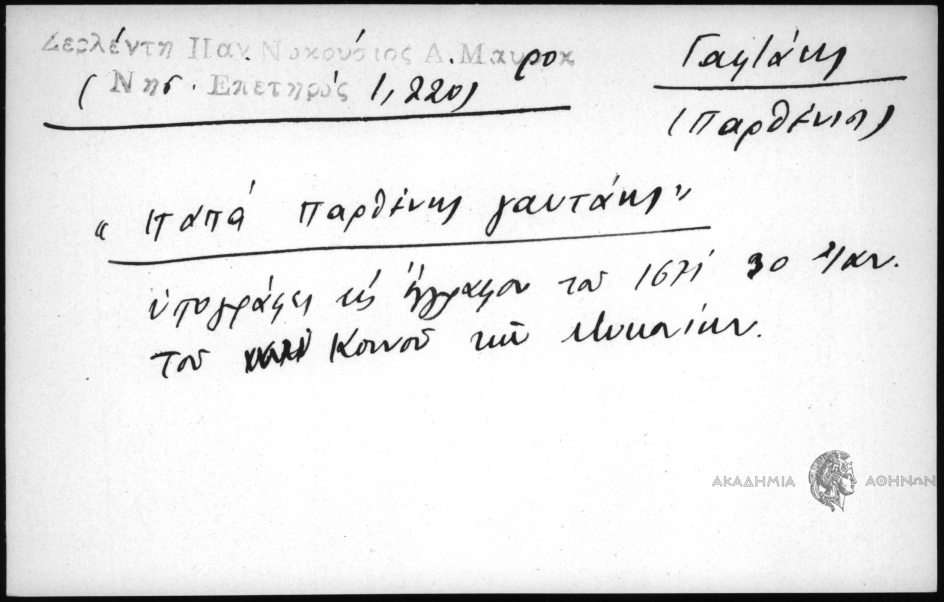 Ζερλέντη Παν. Νικούσιος Α. Μαυροκ
(Νησ. Επετηρίς 1,220)
Γαφτάκης
(Παρθένιος)
"παπά Παρθένης γαυτάκης"
ὑπογράφει εἰς ἔγγραφον τοῦ 1671 30 Ἰαν.
τοῦ Κοινοῦ τῆς Μυκονίων.
ΑΚΑΔΗΜΙΑ ΑΘΗΝΩΝ